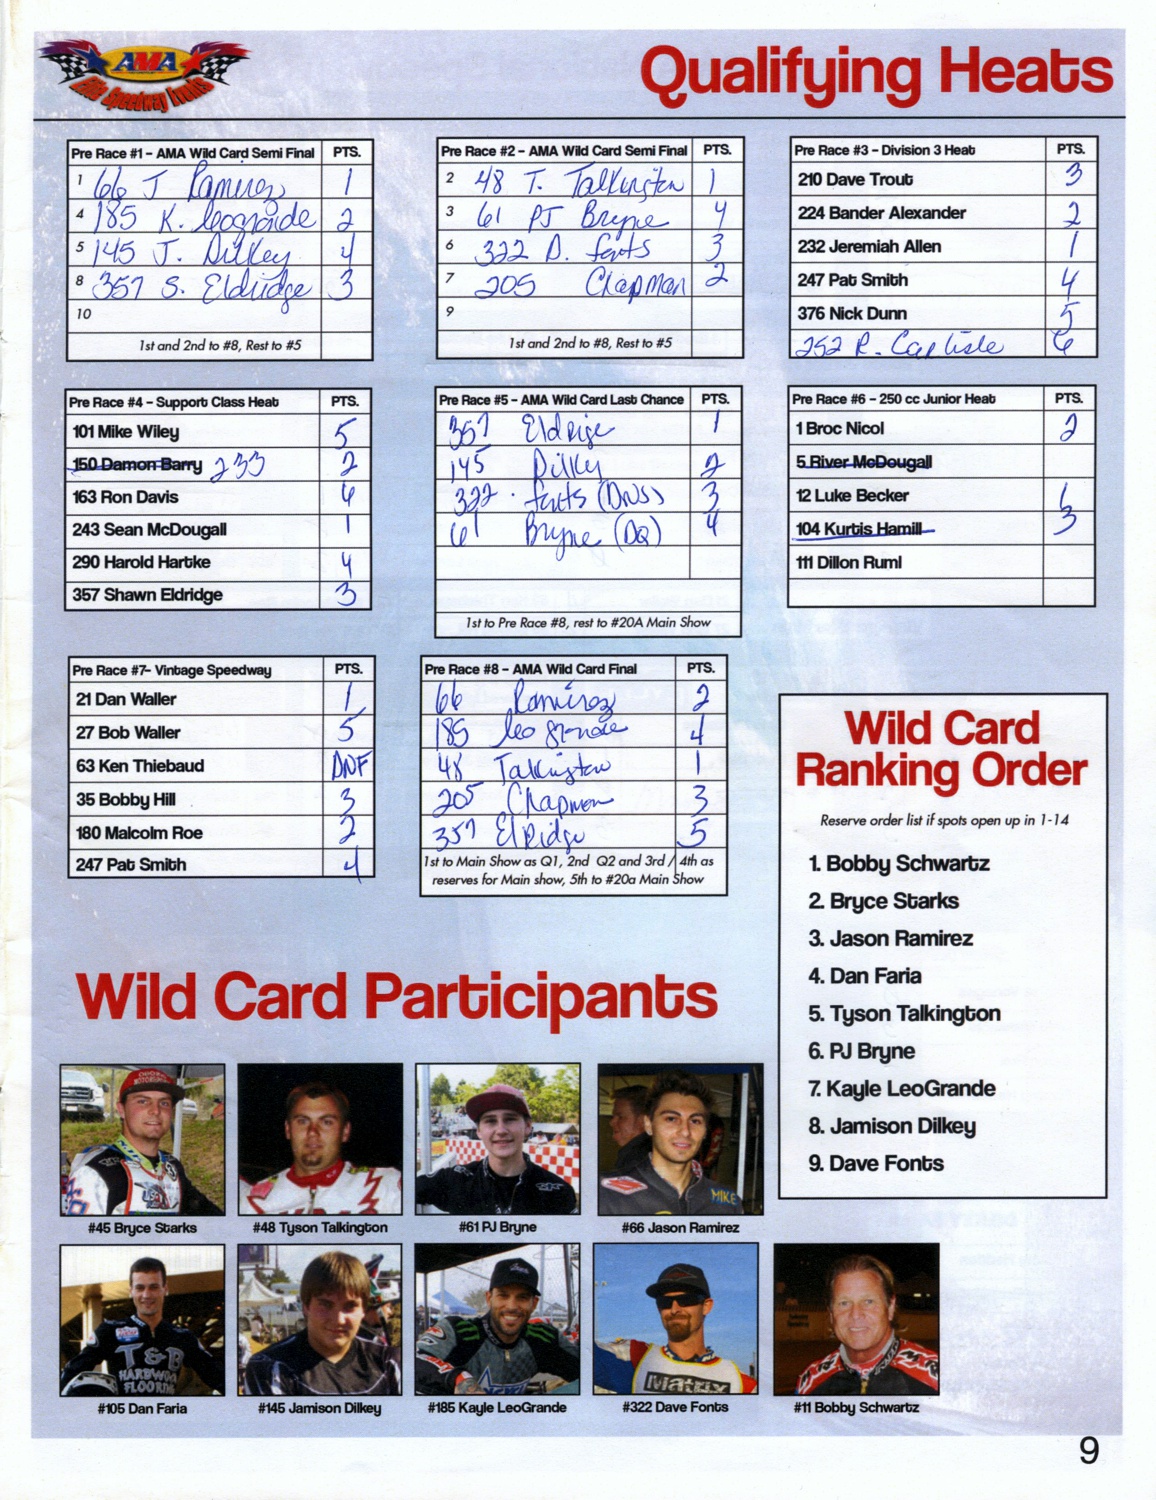 AMA
Elite Speedway Finals
Qualifying Heats
Pre Race #1 – AMA Wild Card Semi Final PTS.
1 66 J Ramirez 1
4 185 K. Leogrande 2
5 145 J. Dilkey 4
8 357 S. Eldridge 3
10
1st and 2nd to #8, Rest to #5
Pre Race #2 - AMA Wild Card Semi Final PTS.
2 48 T. Talkington 1
3 61 PJ Bryne 4
6 322 D. fonts 3
7 205 Chapman 2
9
1st and 2nd to #8, Rest to #5
Pre Race #3 - Division 3 Heat PTS.
210 Dave Trout 3
224 Bander Alexander 2
232 Jeremiah Allen 1
247 Pat Smith 4
376 Nick Dunn 5
252 R. Carlisle 6
Pre Race #4 – Support Class Heat PTS.
101 Mike Wiley 5
150 Damon Barry 233 2
163 Ron Davis 6
243 Sean McDougall 1
290 Harold Hartke 4
357 Shawn Eldridge 3
Pre Race #5 - AMA Wild Card Last Chance PTS.
357 Eldrige 1
145 Dilky 2
322 . fonts (DNS) 3
61 Bryne (DQ) 4
1st to Pre Race #8, rest to #20A Main Show
Pre Race #6 - 250 cc Junior Heat PTS.
1 Broc Nicol 2
5 River McDougall
12 Luke Becker 1
104 Kurtis Hamill 3
111 Dillon Ruml
Pre Race #7- Vintage Speedway PTS.
21 Dan Waller 1
27 Bob Waller 5
63 Ken Thiebaud DNF
35 Bobby Hill 3
180 Malcolm Roe 2
247 Pat Smith 4
Pre Race #8 - AMA Wild Card Final PTS.
66 Ramirez 2
185 leogrande 4
48 Talkington 1
205 Chapman 3
357 Elridge 5
1st to Main Show as Q1, 2nd Q2 and 3rd / 4th as
reserves for Main show, 5th to #20a Main Show
Wild Card
Ranking Order
Reserve order list if spots open up in 1-14
1. Bobby Schwartz
2. Bryce Starks
3. Jason Ramirez
4. Dan Faria
5. Tyson Talkington
6. PJ Bryne
7. Kayle LeoGrande
8. Jamison Dilkey
9. Dave Fonts
Wild Card Participants
MIKE
#45 Bryce Starks
#48 Tyson Talkington
#61 PJ Bryne
#66 Jason Ramirez
T & B
HARDWOOD
FLOORING
Matrix
#105 Dan Faria
#145 Jamison Dilkey
#185 Kayle LeoGrande
#322 Dave Fonts
#11 Bobby Schwartz
9